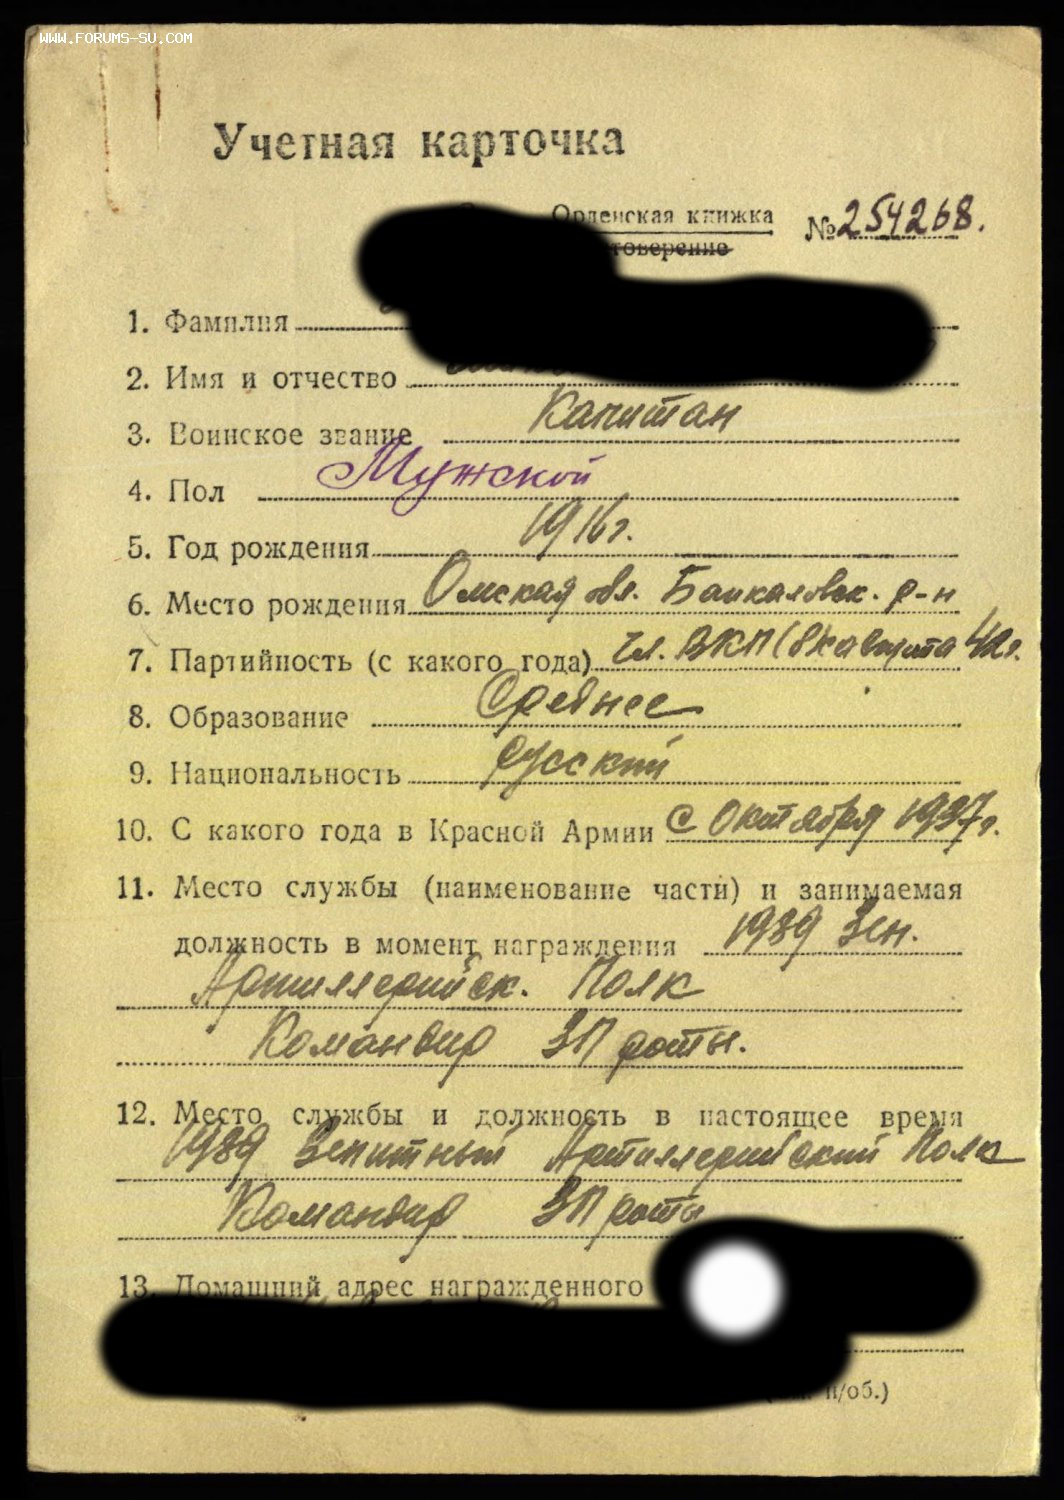 WWW.FORUMS-SU.COM
Учетная карточка
Орденская книжка
№ 254268.
1. Фамилия
2. Имя и отчество
3. Воинское звание Капитан
4. Пол Мужской
5. Год рождения 1916 г.
6. Место рождения Омская обл. Байкаловск. р-н
7. Партийность (с какого года) чл. ВКП(б) августа 42 г.
8. Образование Среднее
9. Национальность русский
10. С какого года в Красной Армии с Октября 1937 г.
11. Место службы (наименование части) и занимаемая
должность в момент награждения 1989 Зен.
Артиллерийск. Полк
Командир ЗП роты.
12. Место службы и должность в настоящее время
1989 Зенитный Артиллерийский Полк
Командир ЗП роты
13. Домашний адрес награжденного
п/об.)